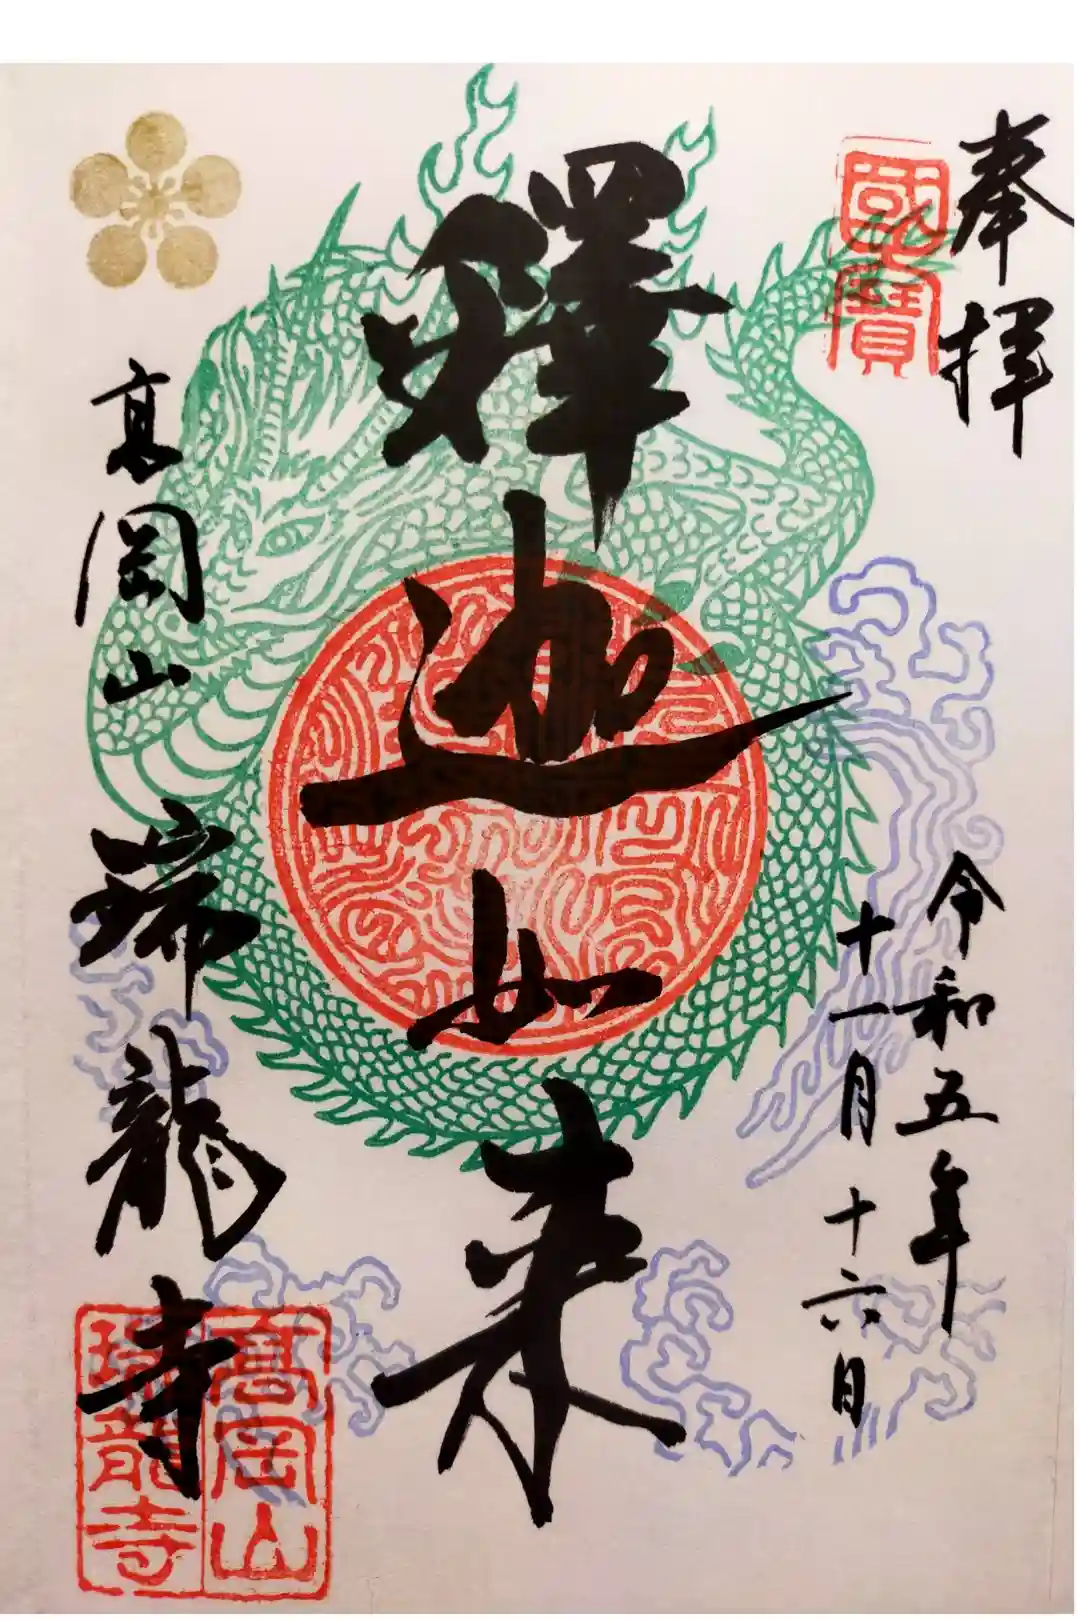 奉拝
國寶
令和五年
十一月十六日
釋迦如来
高岡山
瑞龍寺
高岡山
瑞龍寺